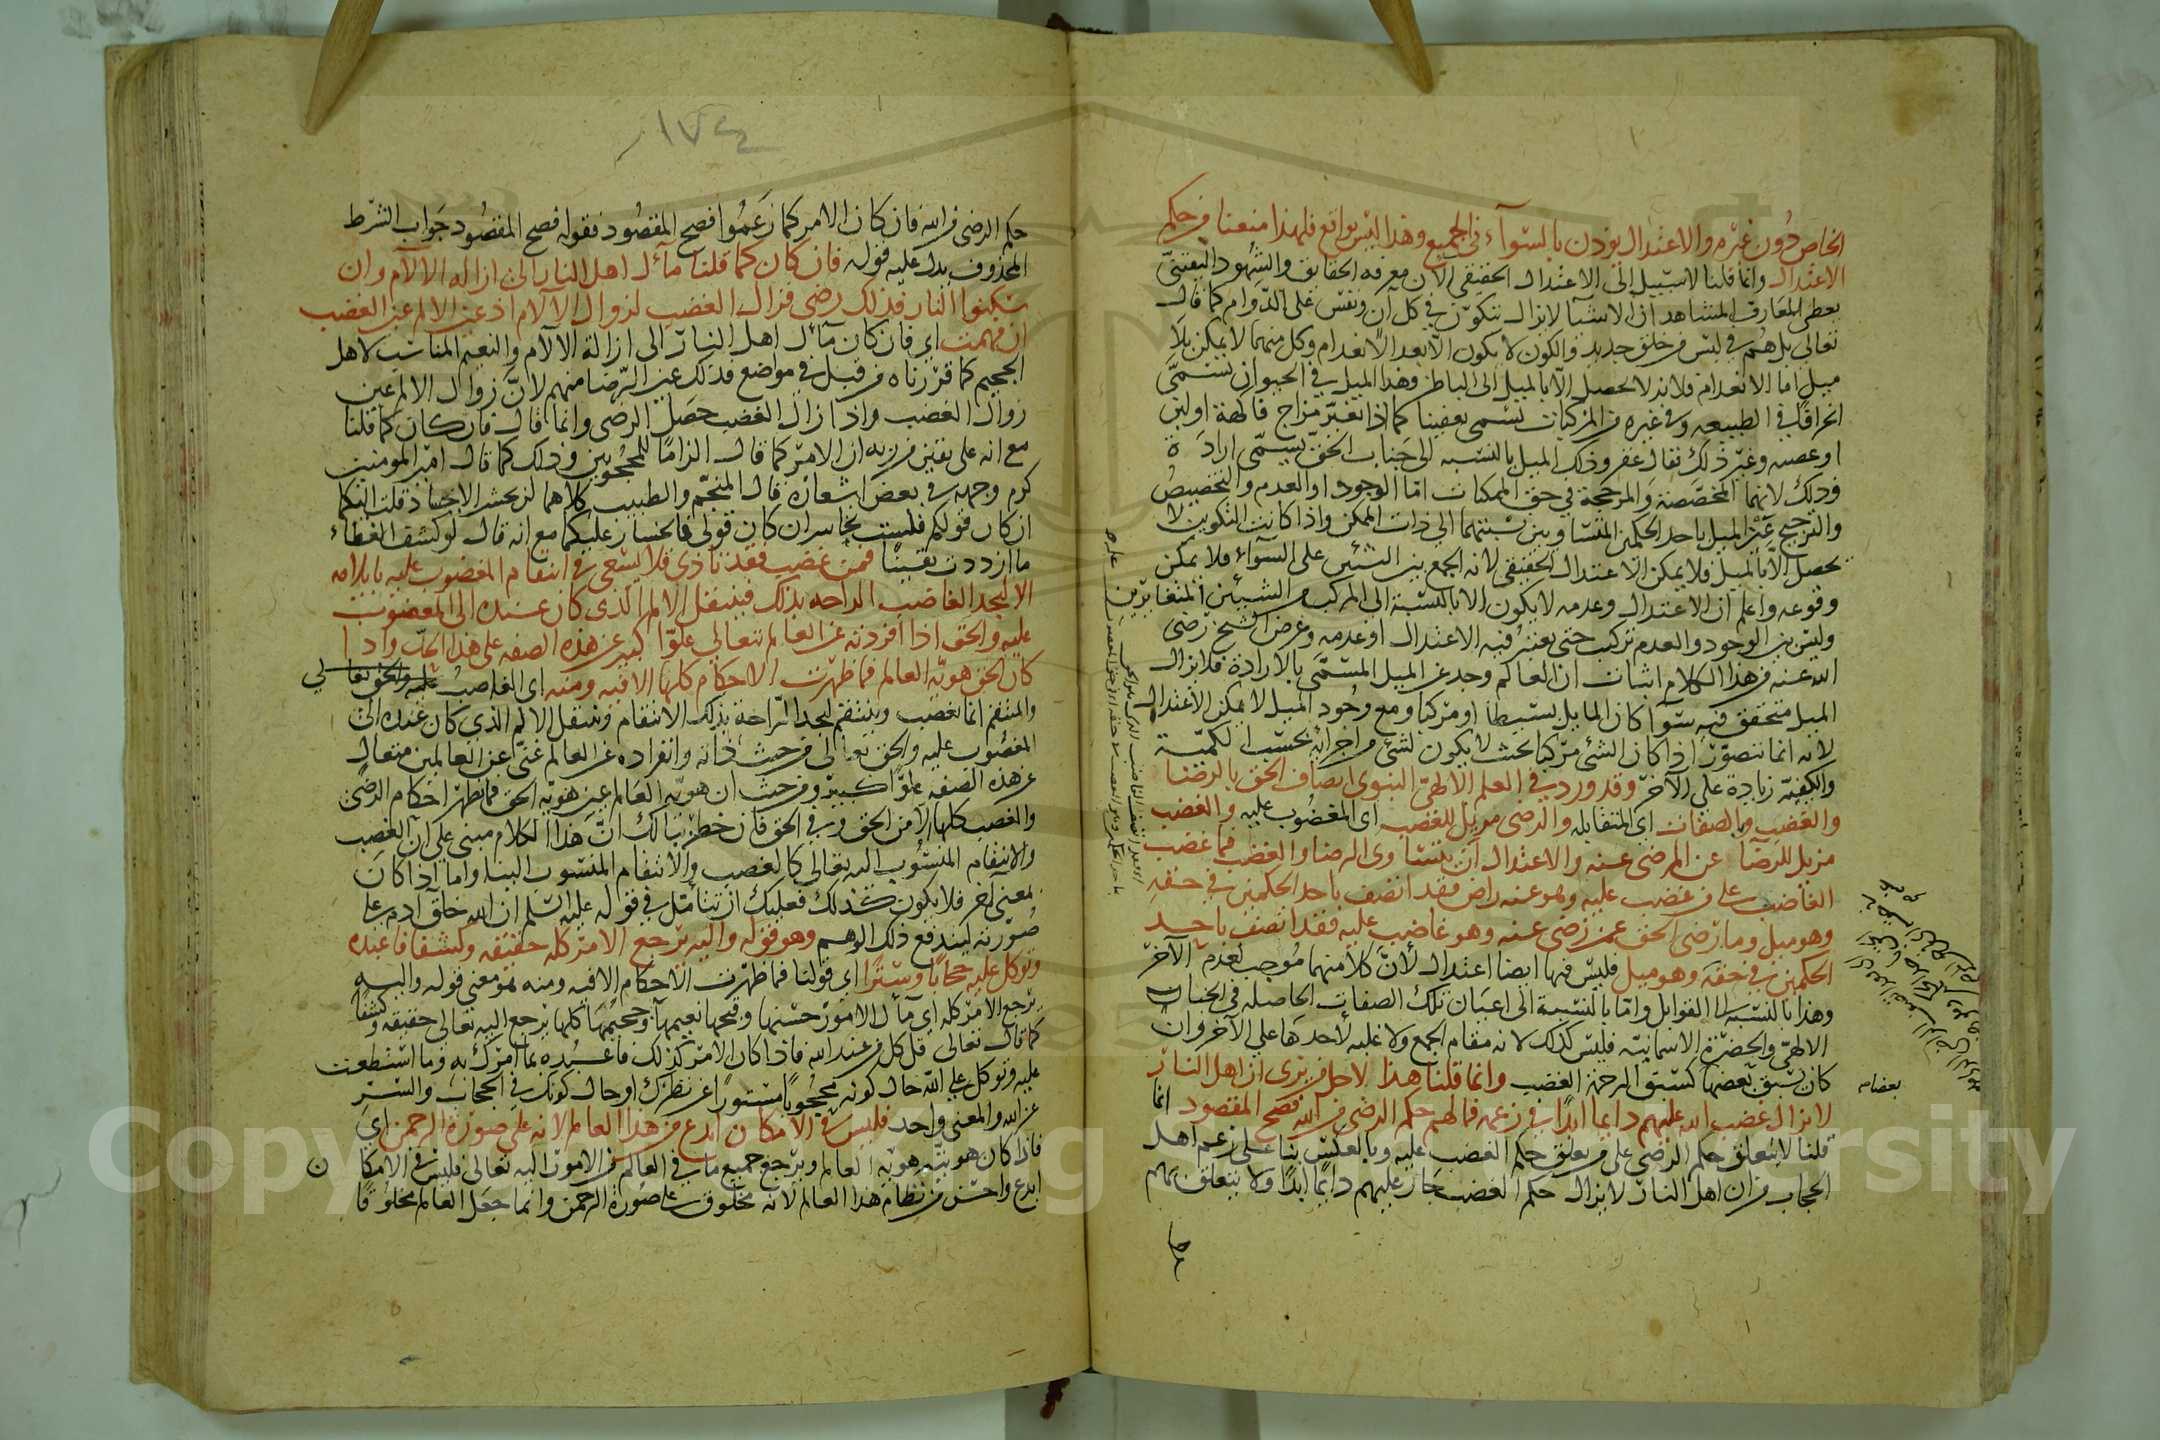 الخاص دون غيره والاعتدال يؤذن بالسوآء في الجميع وهذا ليس بواقع فلهذا منعنا من حكم
الاعتدال وانما قلنا لا سبيل الى الاعتدال الحقيقي لان معرفة الحقايق والشهود اليقيني
يعطي للعارف المشاهد ان الاشيآ لا يزال يتكون في كل آن ونفس على الدوام كما قال
تعالى بل هم في لبس من خلق جديد والكون لا يكون الا بعد الانعدام وكل منهما لا يمكن بلا
ميل اما الانعدام فلانه لا يحصل الا بالميل الى الباطن وهذا الميل في الحيوان يسمى
انحرافا في الطبيعه وفي غيره من المركبات يسمى تعفينا كما اذا تغير مزاج فاكهة او لبن
او عصير وغير ذلك يقال عفن وذلك الميل بالنسبه الى جناب الحق يسمى ارادة
وذلك لانها المخصصة والمرجحة في حق الممكنات اما الوجود او العدم والتخصيص
والترجيح عين الميل باحد الحكمين المتساويين نسبتهما الى ذات الممكن واذا كانت التكوين لا
يحصل الا بالميل فلا يمكن الاعتدال الحقيقي لانه الجمع بين الشيئين على السوآء فلا يمكن
وقوعه واعلم ان الاعتدال وعدمه لا يكون الا بالنسبة الى المركب من الشيئين المتغايرين
وليس بين الوجود والعدم تركيب حتى يعتبر فيه الاعتدال او عدمه وغرض الشيخ رضى
الله عنه من هذا الكلام اثبات ان العالم وجد عن الميل المسمى بالارادة فلا يزال
الميل متحقق فيه سوآ كان المايل بسيطا او مركبا ومع وجود الميل لا يمكن الاعتدال
لانه انما يتصور اذا كان الشئ مركبا بحيث لا يكون لشئ من اجزائه بحسب الكمية
والكيفيه زيادة على الآخر وقد ورد في العلم الالهي النبوي اتصاف الحق بالرضا
والغضب وبالصفات اى المتقابله والرضى مزيل للغضب اى المغضوب عليه والغضب
مزيل للرضا عن المرضى عنه والاعتدال ان يتساوى الرضا والغضب فما غضب
الغاضب على من غضب عليه وهو عنه راض فقد اتصف باحد الحكمين في حقه
وهو ميل وما رضى الحق عمن رضى عنه وهو غاضب عليه فقد اتصف باحد
الحكمين في حقه وهو ميل فليس فيها ايضا اعتدال لان كلا منهما موجب لعدم الآخر
وهذا بالنسبة الى القوابل واما بالنسبة الى اعيان تلك الصفات الحاصله في الجناب
الالهي والحضرة الاسمائيه فليس كذلك لانه مقام الجمع ولا غلبه لاحدها على الآخر وان
كان يسبق بعضها كسبق الرحمة الغضب وانما قلنا هذا لاجل من يرى ان اهل النار
لا يزال غضب الله عليهم دايما ابدا في زعمه فما لهم حكم الرضى من الله فصح المقصود انما
قلنا لا يتعلق حكم الرضى على من تعلق حكم الغضب عليه وبالعكس بنا على زعم اهل
الحجاب من ان اهل النار لا يزال حكم الغضب جار عليهم دايما ابدا ولا يتعلق بهم
بعضا
١٧٤
حكم الرضى من الله فان كان الامر كما زعموا فصح المقصود فقوله فصح المقصود جواب الشرط
المحذوف يدل عليه قوله فان كان كما قلنا مآل اهل النار الى ازالة الالآم وان
سكنوا النار فذلك رضى فزال الغضب لزوال الآلام اذ عين الالم عين الغضب
ان فهمت اى فان كان مآل اهل النار الى ازالة الآلام والنعيم المناسب لاهل
الجحيم كما قررناه من قبل في مواضع فذلك عين الرضا منهم لان زوال الالم عين
زوال الغضب واذا زال الغضب حصل الرضى وانما قال فان كان كما قلنا
مع انه على يقين من ربه ان الامر كما قال الزاما للمحجوبين وذلك كما قال امير المومنين
كرم وجهه في بعض اشعاره قال المنجم والطبيب كلاهما لن يحشر الاجساد قلت اليكما
ان كان قولكم فلست بخاسر ان كان قولى فالخسار عليكما مع انه قال لو كشف الغطاء
ما ازددت يقينا فمن غضب فقد تاذى فلا يسعى في انتقام المغضوب عليه بايلامه
الا ليجد الغاضب الراحه بذلك فينتقل الالم الذى كان عنده الى المغضوب
عليه والحق اذا افردته عن العالم تعالى علوا كبير عن هذه الصفه على هذا الحد واذا
كان الحق هويه العالم فما ظهرت الاحكام كلها الا فيه ومنه اى الغاضب عليه والحق تعالى
والمنتقم انما يغضب وينتقم ليجد الراحة بذلك الانتقام وينتقل الالم الذي كان عنده الى
المغضوب عليه والحق تعالى من حيث ذاته وانفراده عن العالم غني عن العالمين متعال
عن هذه الصفه علوا كبيرا ومن حيث ان هوية العالم عين هويه الحق فما ظهر احكام الرضى
والغضب كلها الا من الحق وفي الحق فان خطر ببالك ان هذا الكلام مبنى على ان الغضب
والانتقام المنسوب اليه تعالى كالغضب والانتقام المنسوب الينا واما اذا كان
بمعنى آخر فلا يكون كذلك فعليك ان تتأمل في قوله عليه السلم ان الله خلق ادم على
صورته ليندفع ذلك الوهم وهو قوله واليه يرجع الامر كله حقيقه وكشفا فاعبده
وتوكل عليه حجابا وسترا اى قولنا فما ظهرت الاحكام الا فيه ومنه هو معنى قوله واليه
يرجع الامر كله اي مآل الامور حسنها وقبحها نعيمها وجحيمها كلها يرجع اليه تعالى حقيقه وكشفا
كما قال تعالى قل كل من عند الله فاذا كان الامر كذلك فاعبده بما امرك به وما استطعت
عليه وتوكل على الله حال كونه محجوبا مستورا عن نظرك او حال كونك في الحجاب والستر
عن الله والمعنى واحد فليس في الامكان ابدع من هذا العالم لانه على صورة الرحمن اى
فاذا كان هويته هوية العالم ويرجع جميع ما في العالم من الامور اليه تعالى فليس في الامكان
ابدع واحسن من نظام هذا العالم لانه مخلوق على صورة الرحمن وانما جعل العالم مخلوقا
Copy King University